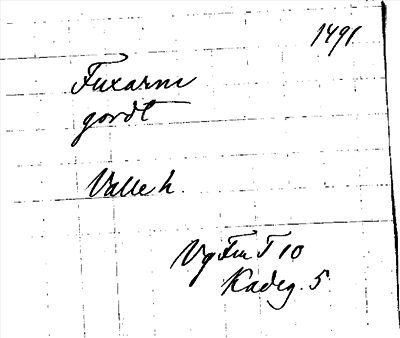 1491
Fuxarne
gordt
Valle h.
Vg Fm T 10
Kadeg. 5